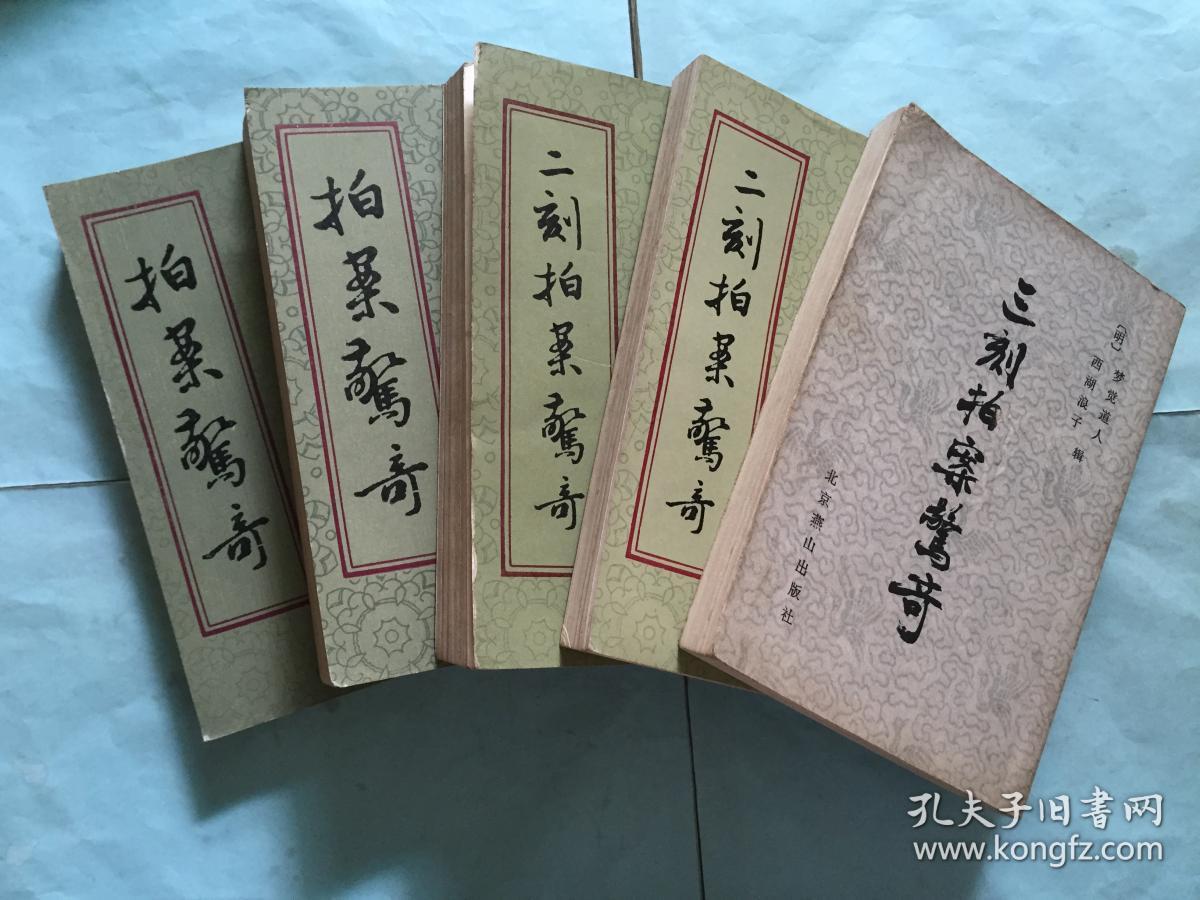 拍案驚奇
拍案驚奇
二刻拍案驚奇
二刻拍案驚奇
〔明〕梦觉道人
西湖浪子 辑
三刻拍案驚奇
北京燕山出版社
孔夫子旧书网
www.kongfz.com